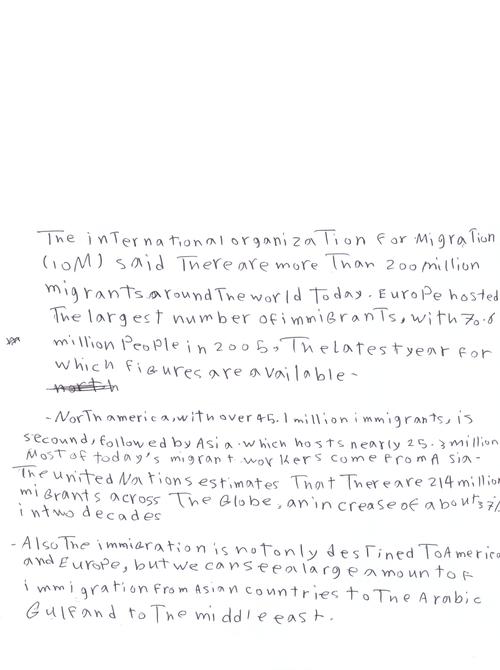 The international organization For Migration
(IOM) said There are more Than 200 million
migrants around The world Today. Europe hosted
The largest number of immigrants, with 70.6
million People in 2005, The latest year for
which figures are available-
north
- North america, with over 45.1 million immigrants, is
secound, followed by Asia. which hosts nearly 25.3 million
Most of today's migrant workers come from Asia-
The united Nations estimates That There are 214 million
migrants across The Globe, an increase of about 37%
in two decades
- Also The immigration is not only destined To America
and Europe, but we can see a large amount of
immigration from Asian countries to The Arabic
Gulf and to The middle east.